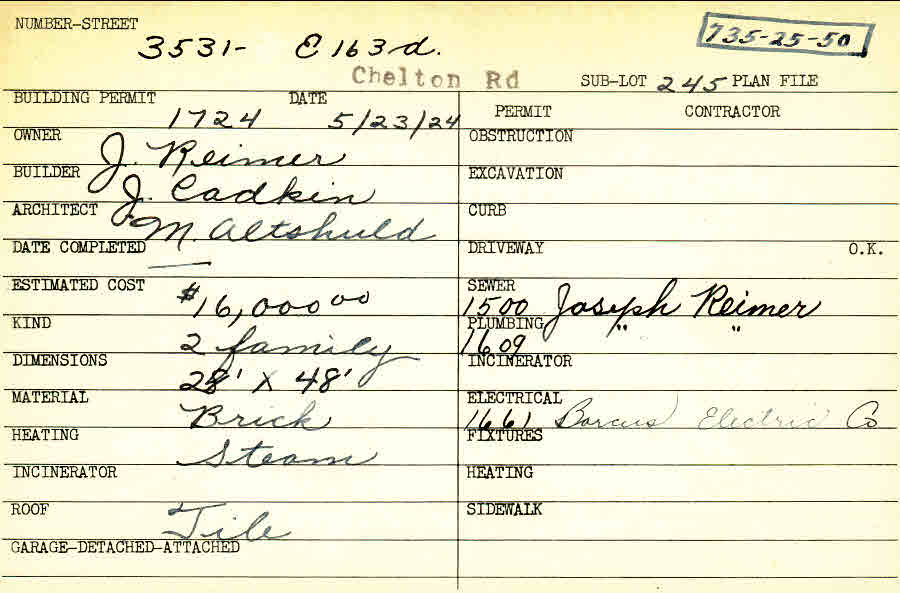 NUMBER-STREET
3531- E 163-d. 735-25-50
Chelton Rd SUB-LOT 245 PLAN FILE
BUILDING PERMIT DATE
1724 5/23/24
OWNER J. Reimer
BUILDER J. Cadkin
ARCHITECT M. Altshuld
DATE COMPLETED —
ESTIMATED COST $16,000 00
KIND 2 family
DIMENSIONS 28' X 48'
MATERIAL Brick
HEATING Steam
INCINERATOR
ROOF Tile
GARAGE-DETACHED-ATTACHED
PERMIT CONTRACTOR
OBSTRUCTION
EXCAVATION
CURB
DRIVEWAY O.K.
SEWER
1500 Joseph Reimer
PLUMBING " "
1609
INCINERATOR
ELECTRICAL
1661 Barcus Electric Co
FIXTURES
HEATING
SIDEWALK